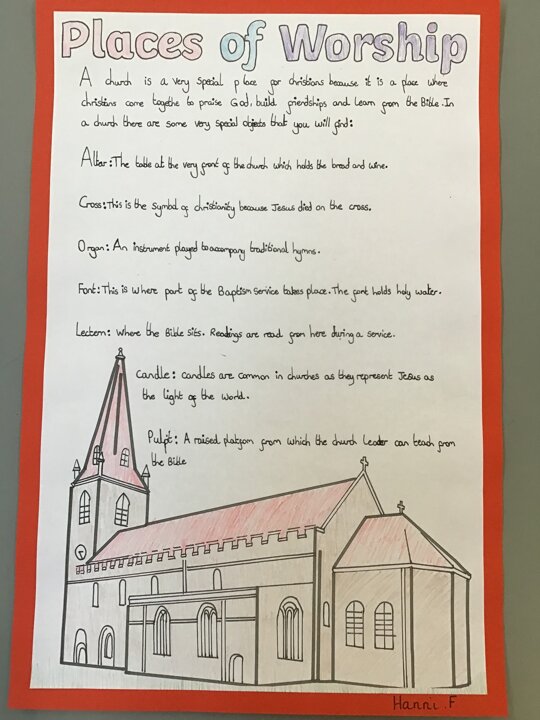 Places of Worship
A church is a very special place for christians because it is a place where
christians come togethe to praise God, build friendships and learn from the Bible. In
a church there are some very special objects that you will find:
Alter: The table at the very front of the church which holds the bread and wine.
Cross: This is the symbol of christianity because Jesus died on the cross.
Organ: An instrument played to accompany traditional hymns.
Font: This is where part of the Baptism service takes place. The font holds holy water.
Lectern: Where the Bible sits. Readings are read from here during a service.
Candle: candles are common in churches as they represent Jesus as
the light of the world.
Pulpit: A raised platform from which the church leader can teach from
the Bible
Hanni.F